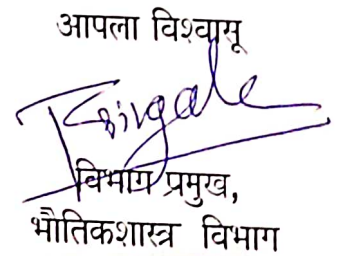 आपला विश्वासू
विभाग प्रमुख,
भौतिकशास्त्र विभाग